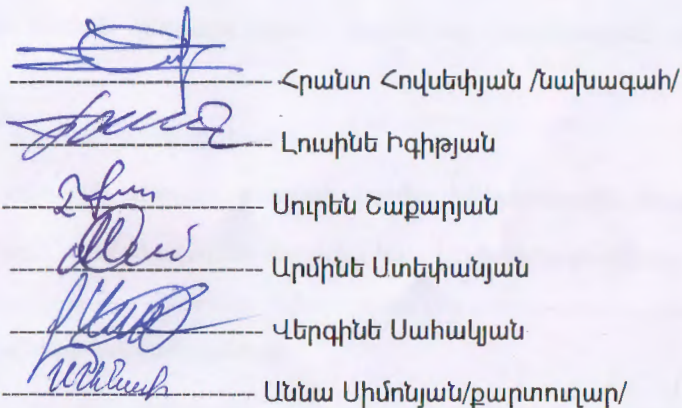 Հրանտ Հովսեփյան /նախագահ/
Լուսինե Իգիթյան
Սուրեն Շաքարյան
Արմինե Ստեփանյան
Վերգինե Սահակյան
Աննա Սիմոնյան/քարտուղար/